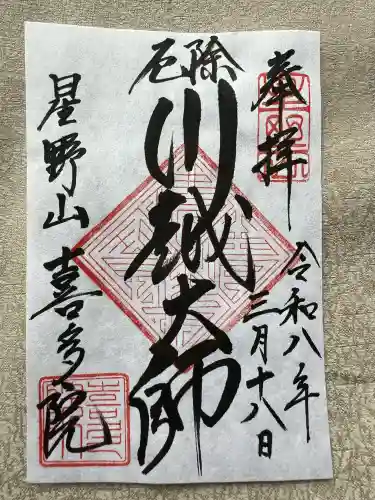 奉拝
令和八年
三月十八日
厄除
川越大師
星野山
喜多院